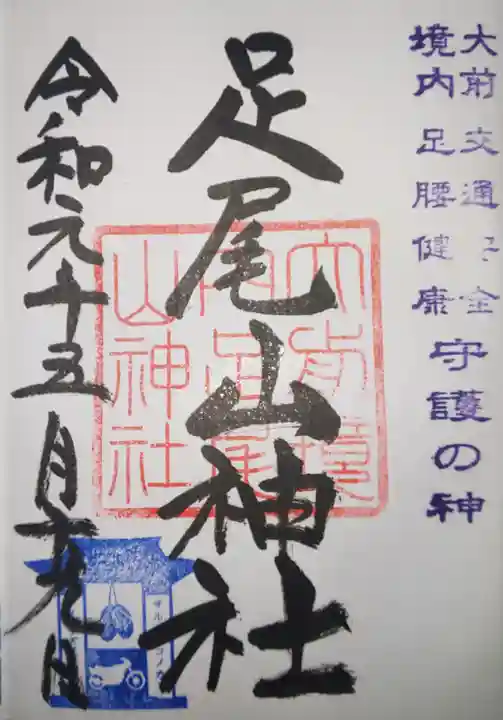 大前交通安全
境内足腰健康
守護の神
足尾山神社
大前境
内足尾
山神社
令和元年五月十九日